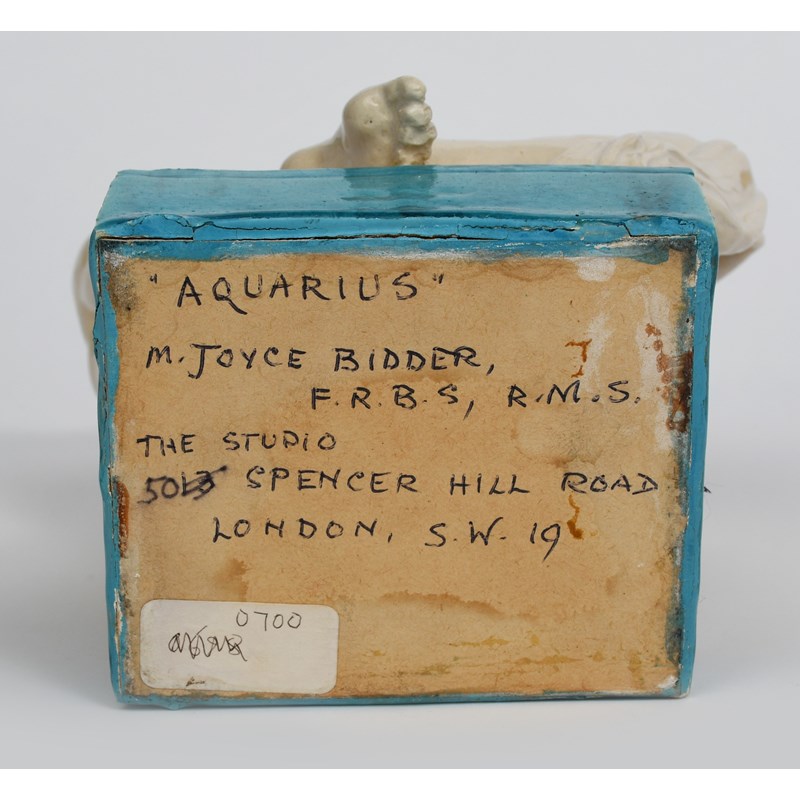 "AQUARIUS"
M. JOYCE BIDDER,
F.R.B.S, R.M.S.
THE STUDIO
SPENCER HILL ROAD
LONDON, S.W. 19
0700